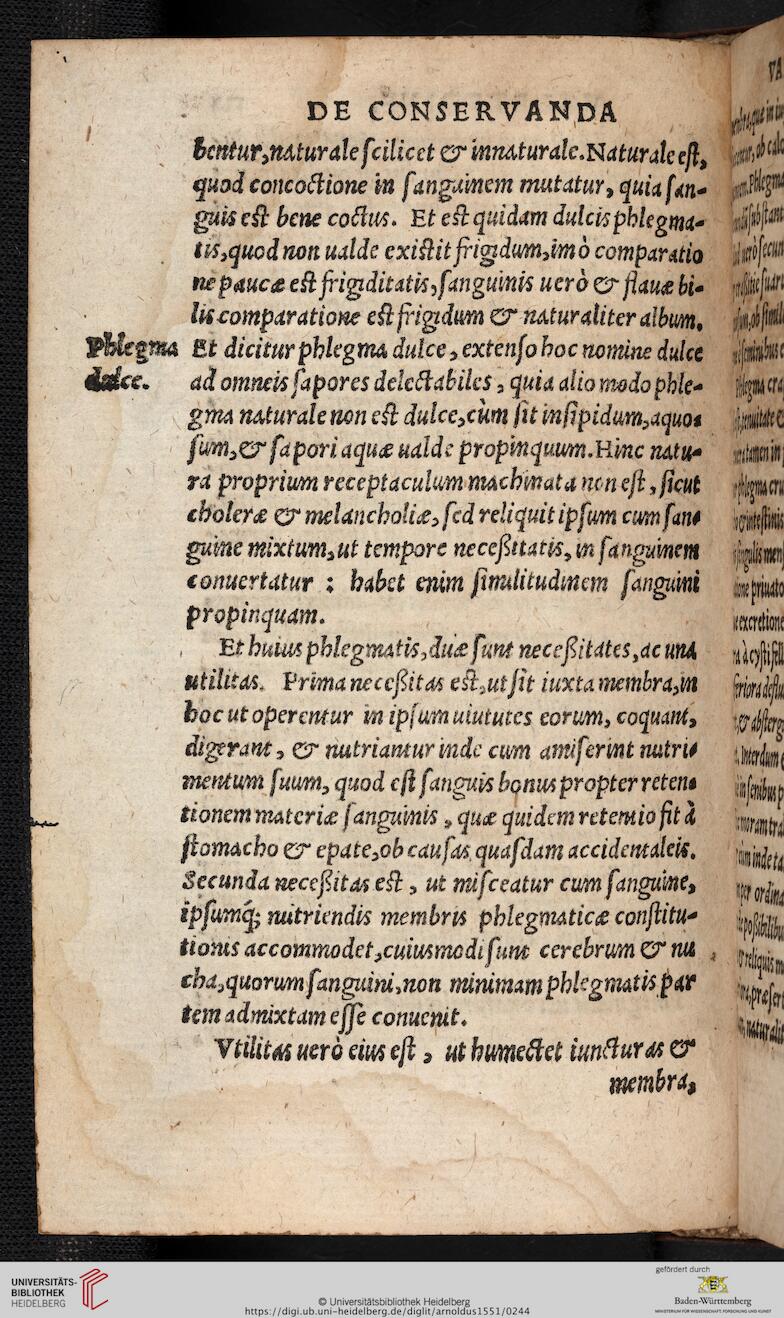 DE CONSERVANDA
bentur, naturale scilicet & innaturale. Naturale est,
quod concoctione in sanguinem mutatur, quia san-
guis est bene coctus. Et est quidam dulcis phlegma-
tis, quod non ualde existit frigidum, imò comparatio
ne paucæ est frigiditatis, sanguinis uerò & flauæ bi-
lis comparatione est frigidum & naturaliter album.
Phlegma
dulce.
Et dicitur phlegma dulce, extenso hoc nomine dulce
ad omneis sapores delectabiles, quia alio modo phle-
gma naturale non est dulce, cùm sit insipidum, aquo-
sum, & sapori aquæ ualde propinquum. Hinc natu-
ra proprium receptaculum machinata non est, sicut
choleræ & melancholiæ, sed reliquit ipsum cum san-
guine mixtum, ut tempore neceßitatis, in sanguinem
conuertatur : habet enim similitudinem sanguini
propinquam.
Et huius phlegmatis, duæ sunt neceßitates, ac una
utilitas. Prima neceßitas est, ut sit iuxta membra, in
hoc ut operentur in ipsum uiututes eorum, coquant,
digerant, & nutriantur inde cum amiserint nutri-
mentum suum, quod est sanguis bonus propter reten-
tionem materiæ sanguinis, quæ quidem retentio fit à
stomacho & epate, ob causas quasdam accidentaleis.
Secunda neceßitas est, ut misceatur cum sanguine,
ipsumq́; nutriendis membris phlegmaticæ constitu-
tionis accommodet, cuiusmodi sunt cerebrum & nu
cha, quorum sanguini, non minimam phlegmatis par
tem admixtam esse conuenit.
Vtilitas uerò eius est, ut humectet iuncturas &
membra,
UNIVERSITÄTS-
BIBLIOTHEK
HEIDELBERG
© Universitätsbibliothek Heidelberg
https://digi.ub.uni-heidelberg.de/diglit/arnoldus1551/0244
gefördert durch
Baden-Württemberg
MINISTERIUM FÜR WISSENSCHAFT, FORSCHUNG UND KUNST